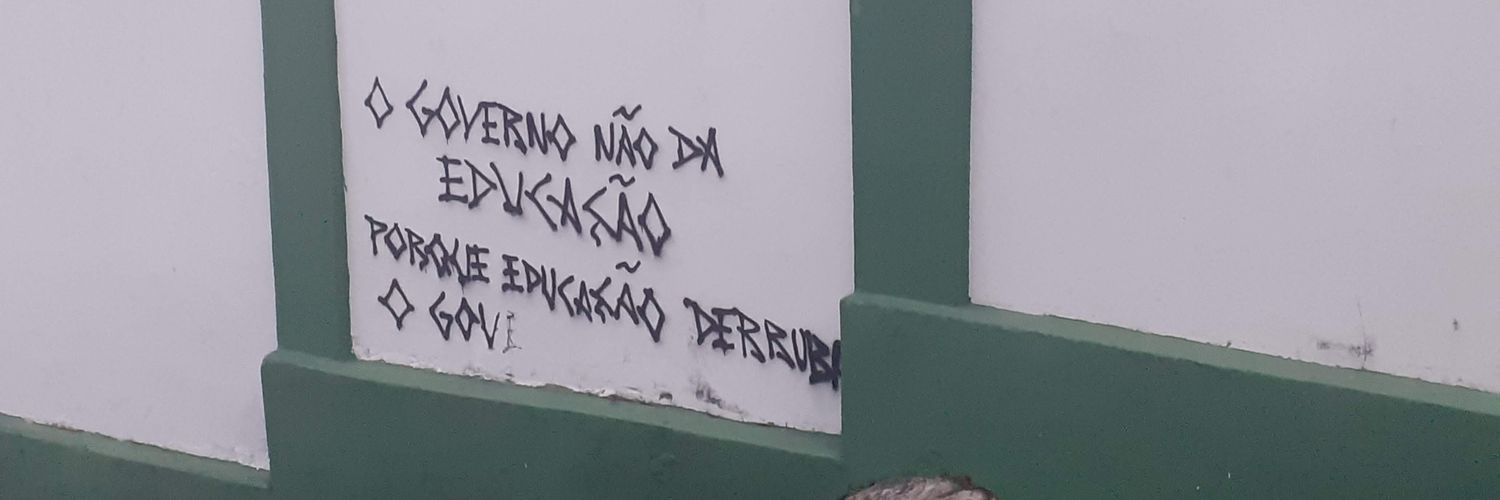 O GOVERNO NÃO DA
EDUCAÇÃO
PORQUE EDUCAÇÃO DERRUBA
O GOVE